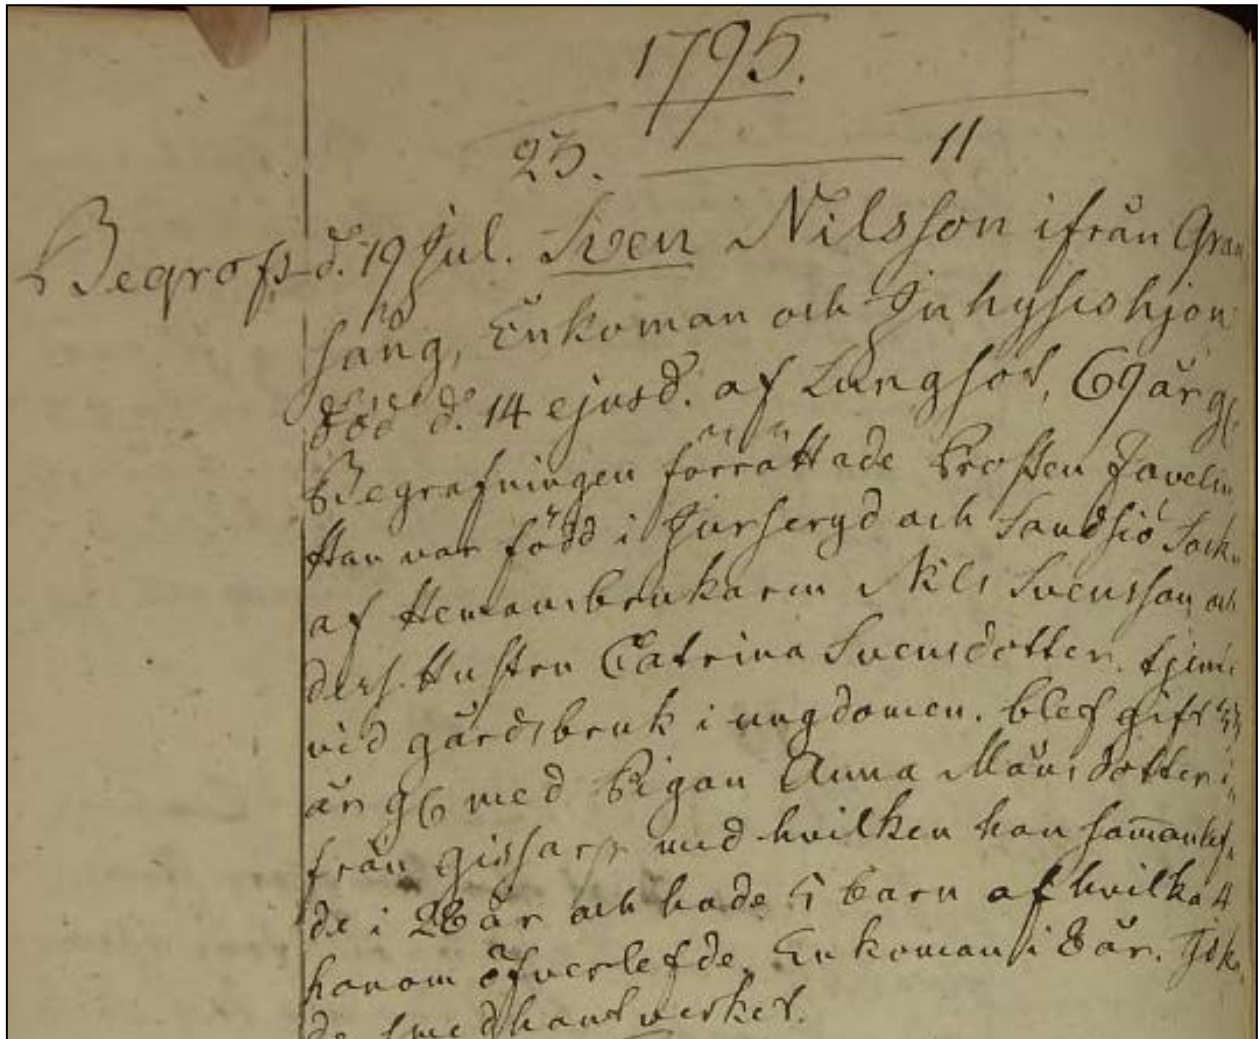 1795.
23. 11
Begrofs d. 19 Jul. Sven Nilsson ifrån Gran
hsäng, Enkoman och Inhysishjon
död d. 14 ejusd. af Lungsot, 69 år gl.
Begrafningen förrättade Prosten Javelin
Han var född i Hjurseryd och Sandsiö Sock.
af Hemansbrukaren Nils Svensson och
ders. Hustru Catrina Svensdotter. tjent
vid gårdsbruk i ungdomen. blef gift
år gl. med Pigan Anna Månsdotter i
från Gissarp med hvilken han samanlef,
de i 28 år och hade 5 barn af hvilka 4
honom öfverlefde. Enkoman i 8 år. Idk,
de smedhantverket.